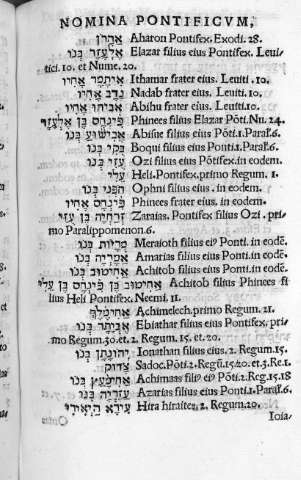 NOMINA PONTIFICVM,
אַהֲרֹן Aharon Pontifex. Exodi. 28.
אֶלְעָזָר בְּנוֹ Elazar filius eius Pontifex. Leui
tici. 10. et Nume. 20.
אִיתָמָר אָחִיו Ithamar frater eius. Leuiti. 10.
נָדָב אָחִיו Nadab frater eius. Leuiti. 10.
אֲבִיהוּ אָחִיו Abihu frater eius. Leuiti. 10.
פִּינְחָס בֶּן אֶלְעָזָר Phinees filius Elazar Põti. Nu. 24.
אֲבִישׁוּעַ בְּנוֹ Abisue filius eius Põti. 1. Paral. 6.
בֻּקִּי בְּנוֹ Boqui filius eius Ponti. 1. Paral. 6.
עֻזִּי בְּנוֹ Ozi filius eius Põtifex. in eodem.
עֵלִי Heli. Pontifex. primo Regum. 1.
חָפְנִי בְּנוֹ Ophni filius eius. in eodem.
פִּינְחָס אָחִיו Phinees frater eius. in eodem.
זְרַחְיָה בֶּן עֻזִּי Zaraias. Pontifex filius Ozi. pri
mo Paralippomenon. 6.
מְרָיוֹת בְּנוֹ Meraioth filius eiꝰ Ponti. in eodẽ.
אֲמַרְיָה בְּנוֹ Amarias filius eius Ponti. in eodẽ.
אֲחִיטוּב בְּנוֹ Achitob filius eius Ponti. in eodẽ.
אֲחִיטוּב בֶּן פִּינְחָס בֶּן עֵלִי Achitob filius Phinees fi
lius Heli Pontifex. Neemi. 11.
אֲחִימֶלֶךְ Achimelech. primo Regum. 21.
אֶבְיָתָר בְּנוֹ Ebiathar filius eius Põtifex. pri
mo Regum. 30. et 2. Regum. 15. et. 20.
יְהוֹנָתָן בְּנוֹ Ionathan filius eius. 2. Regum. 15.
צָדוֹק Sadoc. Põti. 2. Regũ. 15. 20. et. 3. Re. 1.
אֲחִימַעַץ בְּנוֹ Achimaas filiꝰ eiꝰ Põti. 2. Reg. 15. 18
עֲזַרְיָה בְּנוֹ Azarias filius eius Ponti. 1. Paral. 6.
עִירָא הַיָּאִירִי Hira hiraites. 2. Regum. 20.
Ioia,